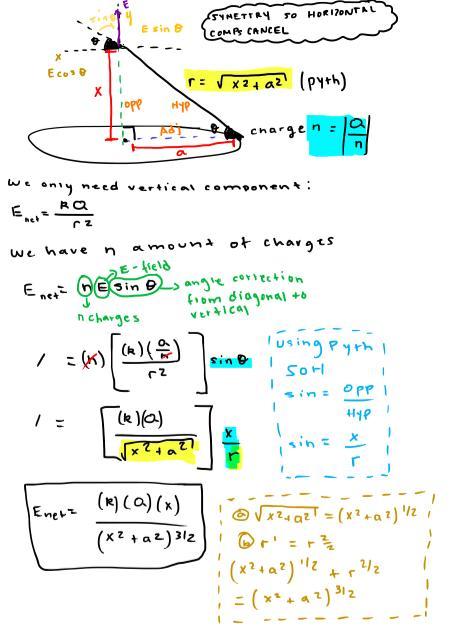 SYMETTRY SO HORIZONTAL
COMPS CANCEL
E
y
E sin θ
θ
x
E cos θ
r = √x² + a² (pyth)
x
opp
Hyp
Adj
θ
a
charge n = |Q/n|
We only need vertical component:
E net = kQ / r²
We have n amount of charges
E-field
E net = n E sin θ → angle correction
from diagonal to
vertical
n charges
/ = (n) [ (k)(Q/n) / r² ] sin θ
/ = [ (k)(Q) / √x² + a² ] x/r
E net = (k)(Q)(x) / (x² + a²) 3/2
using pyth
SOH
sin = opp / Hyp
sin = x / r
ⓐ √x² + a² = (x² + a²) 1/2
ⓑ r¹ = r 2/2
(x² + a²) 1/2 + r 2/2
= (x² + a²) 3/2